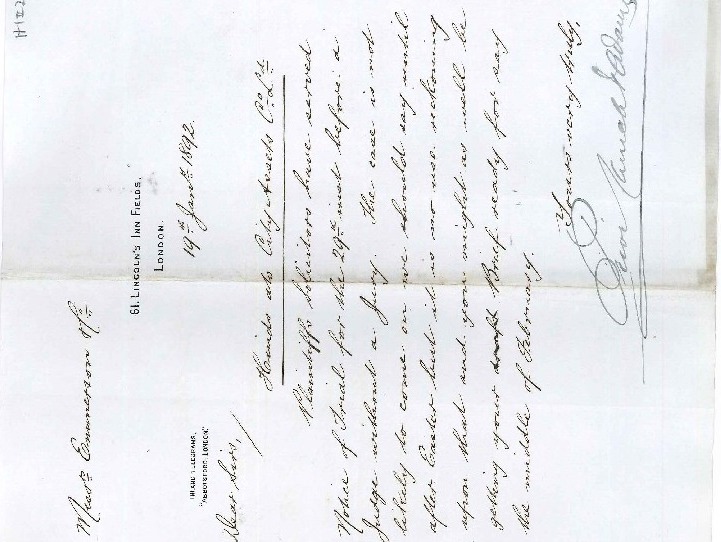 61, LINCOLN'S INN FIELDS,
LONDON.
19th Jany. 1892.
INLAND TELEGRAMS,
"ABBOTSFORD, LONDON."
Dear Sirs,
Hands ats City & Coy. Ld.
Plaintiffs Solicitors have served
Notice of Trial for the 29th inst before a
Judge without a Jury. The case is not
likely to come on we should say until
after Easter but it is no use reckoning
upon that and you might as well be
getting your Brief ready for say
the middle of February.
Yours very truly,
Messrs Emmerson & Co.